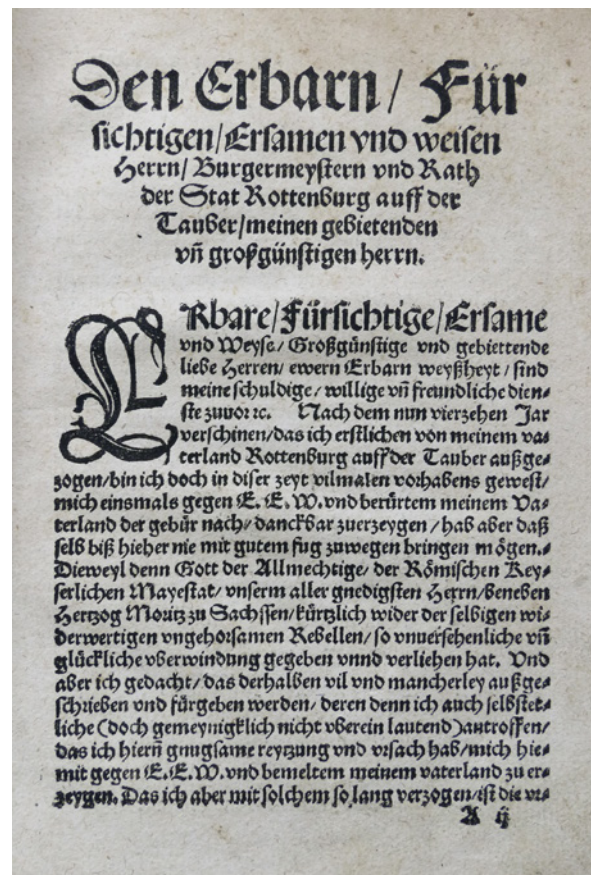 Den Erbarn/ Für
sichtigen/Ersamen vnd weisen
Herrn/ Burgermeystern vnd Rath
der Stat Rottenburg auff der
Tauber/meinen gebietenden
vñ großgünstigen herrn.
ERbare/Fürsichtige/Ersame
vnd Weyse/ Großgünstige vnd gebiettende
liebe Herren/ ewern Erbarn weyßheyt/ sind
meine schuldige/ willige vñ freundliche dien⸗
ste zuuor ꝛc. Nach dem nun vierzehen Jar
verschinen/das ich erstlichen von meinem va⸗
terland Rottenburg auff der Tauber außge⸗
zogen/bin ich doch in diser zeyt vilmalen vorhabens gewest/
mich einsmals gegen E. E. W. vnd berürtem meinem Va⸗
terland der gebür nach/ danckbar zuerzeygen/ hab aber daß
selb biß hieher nie mit gutem fug zuwegen bringen mögen.
Dieweyl denn Gott der Allmechtige/ der Römischen Key⸗
serlichen Mayestat/ vnserm aller gnedigsten Herrn/beneben
Hertzog Moritz zu Sachssen/kürtzlich wider der selbigen wi⸗
derwertigen vngehorsamen Rebellen/ so vnuersehenliche vñ
glückliche vberwindung gegeben vnnd verliehen hat. Vnd
aber ich gedacht/das derhalben vil vnd mancherley außge⸗
schrieben vnd fürgeben werden/ deren denn ich auch selbstet⸗
liche (doch gemeynigklich nicht vberein lautend) antroffen/
das ich hierñ gnugsame reytzung vnd vrsach hab/mich hie⸗
mit gegen E. E. W. vnd bemeltem meinem vaterland zu er⸗
zeygen. Das ich aber mit solchem so lang verzogen/ist die vr⸗
A ij